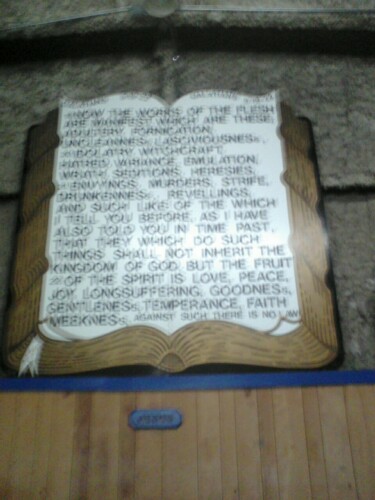 NOW THE WORKS OF THE FLESH
ARE MANIFEST WHICH ARE THESE,
ADULTERY FORNICATION,
UNCLEANNES, LASCIVIOUSNESs,
IDOLATRY WITCHCRAFT,
HATRED, VARIANCE, EMULATION,
WRATH, SEDITIONS, HERESIES,
ENVYINGS, MURDERS, STRIFE,
DRUNKENNESS, REVELLINGS,
AND SUCH LIKE OF THE WHICH
I TELL YOU BEFORE, AS I HAVE
ALSO TOLD YOU IN TIME PAST,
THAT THEY WHICH DO SUCH
THINGS SHALL NOT INHERIT THE
KINGDOM OF GOD. BUT THE FRUIT
OF THE SPIRIT IS LOVE, PEACE,
JOY, LONGSUFFERING, GOODNESs,
GENTLENESs, TEMPERANCE, FAITH
MEEKNESs, AGAINST SUCH THERE IS NO LAW